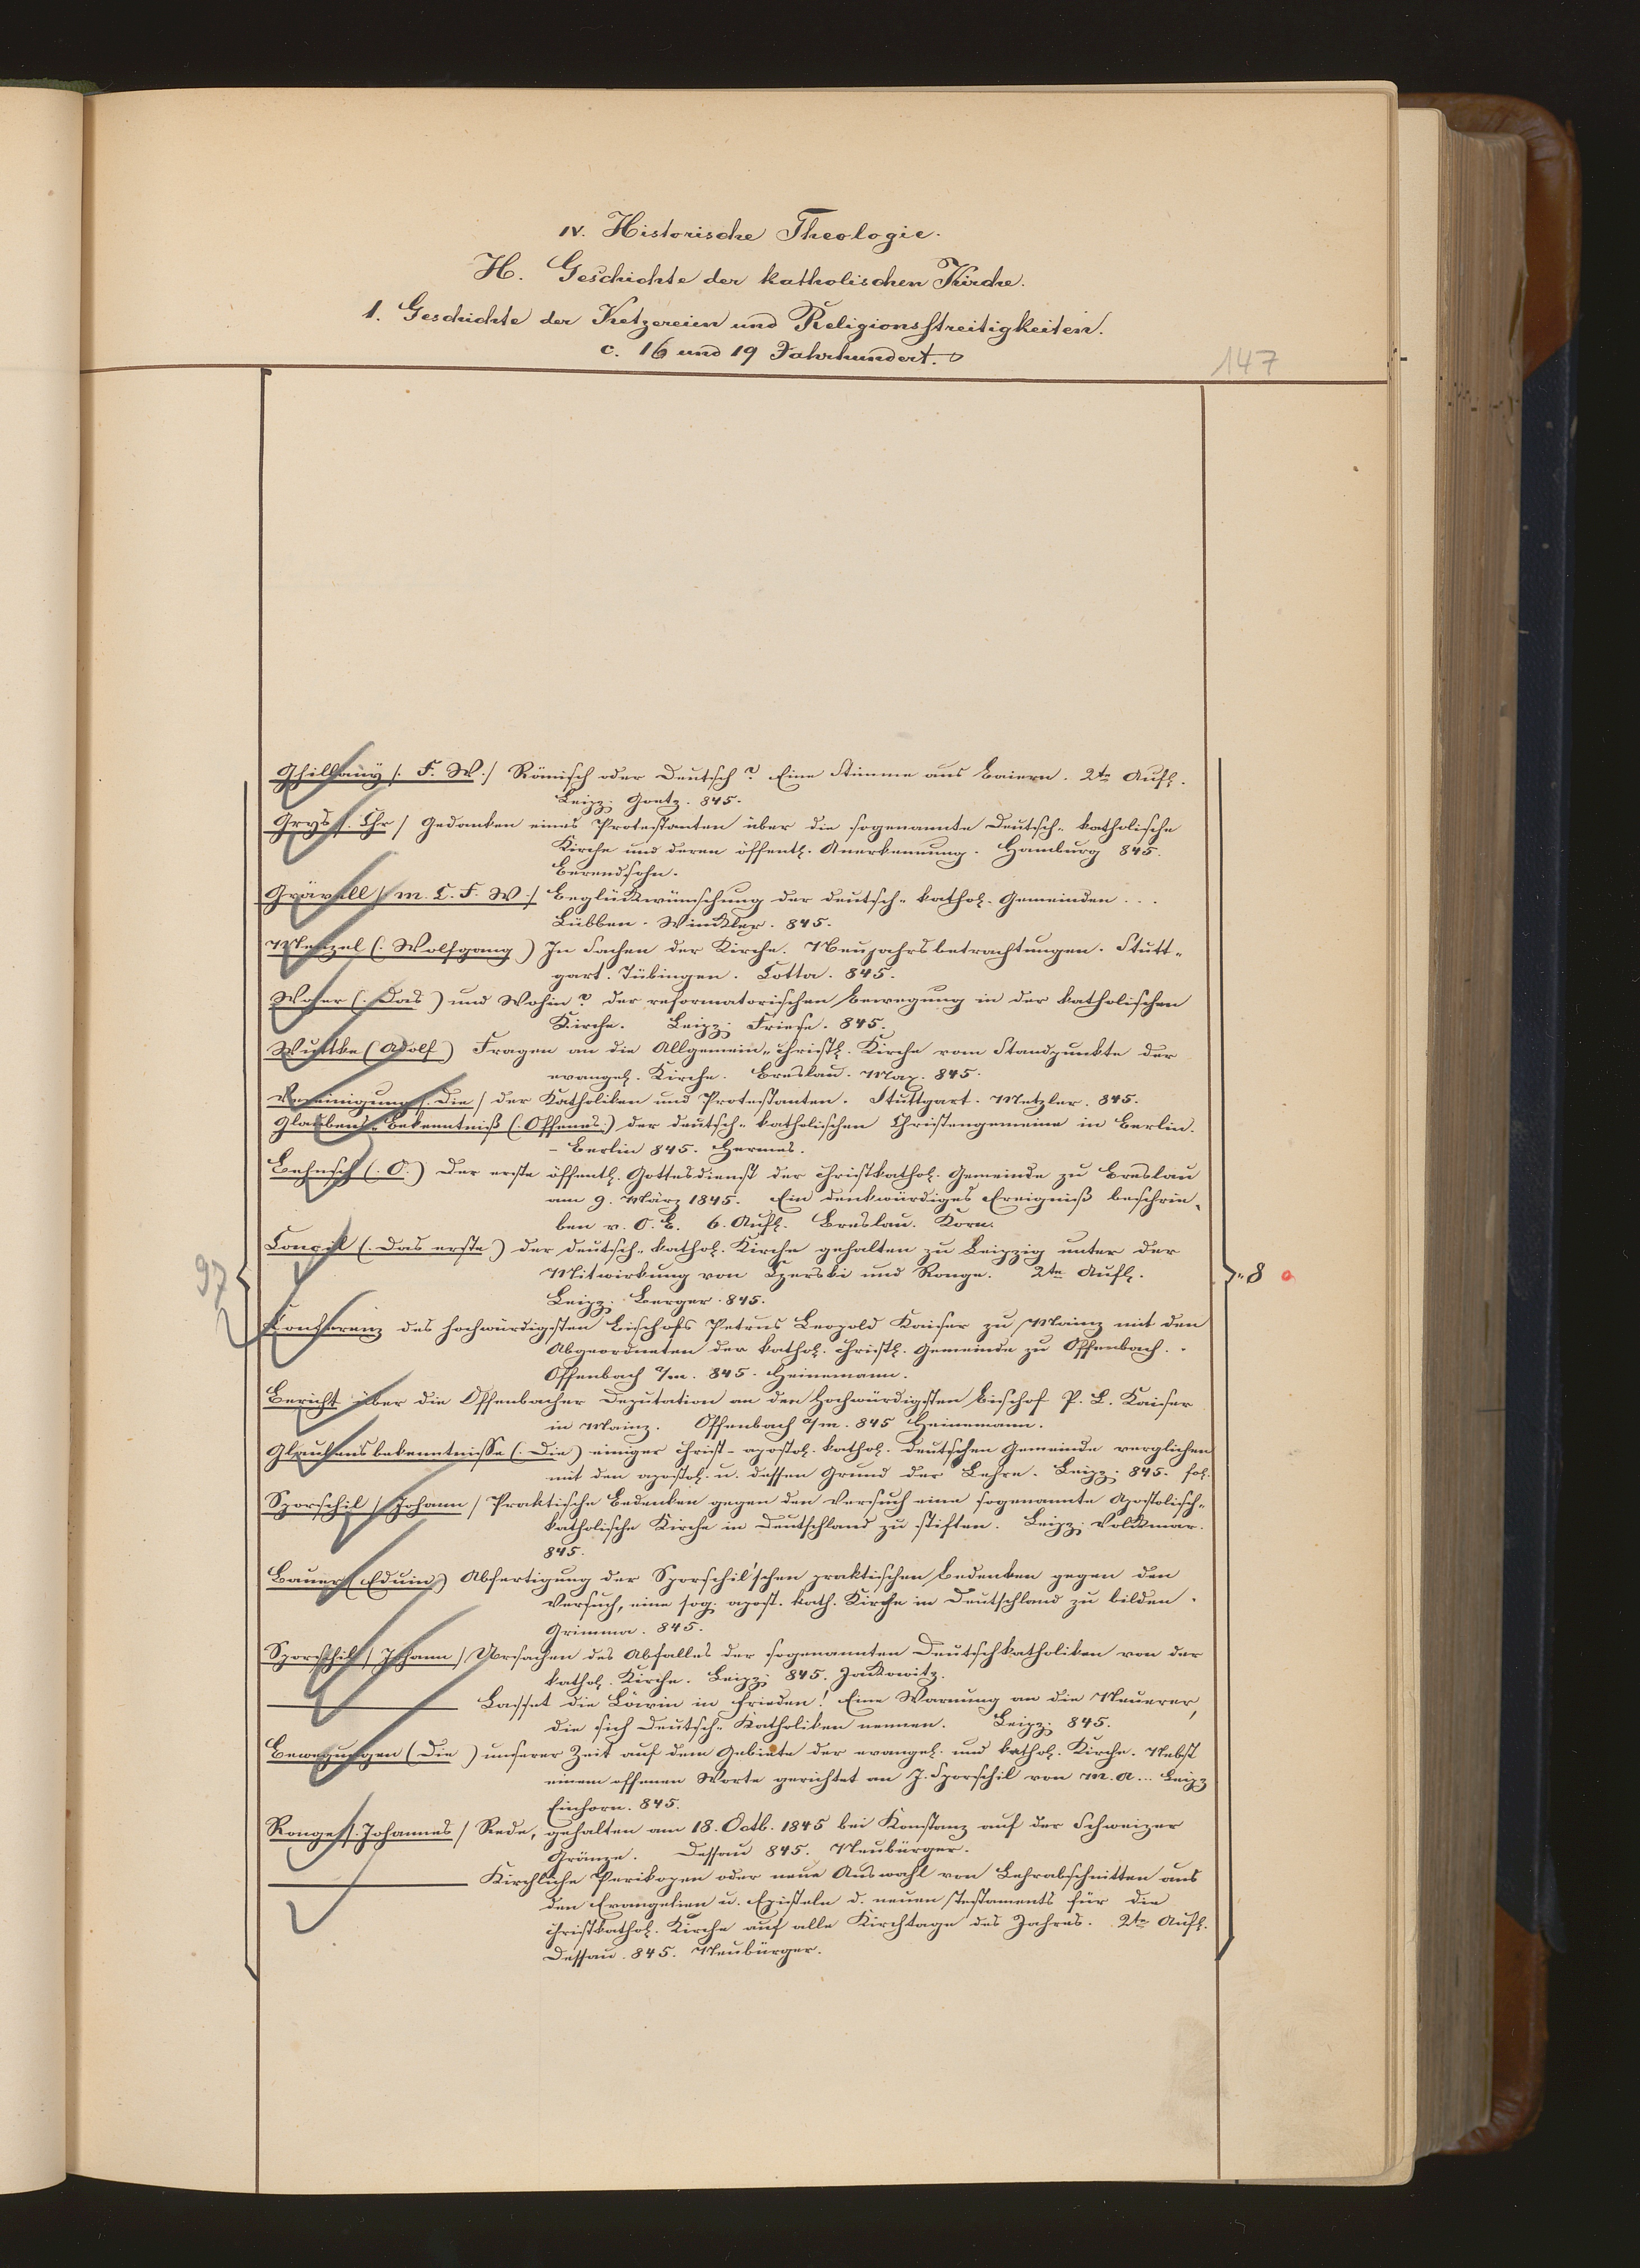 IV. Historische Theologie.
H. Geschichte der katholischen Kirche.
1. Geschichte der Ketzereien und Religionsstreitigkeiten.
c. 16 und 19 Jahrhundert.
147
Ghillany /: F. W:/ Römisch oder Deutsch? Eine Stimme aus Baiern. 2te Aufl.
Leipz. Goetz. 845.
Grys /: Chr / Gedanken eines Protestanten über die sogenannte Deutsch-katholische
Kirche und deren öffentl. Anerkennung. Hamburg 845.
Berendsohn.
Grävell /: M. C. F. W:/ Beglückwünschung der deutsch-kathol. Gemeinden ...
Lübben. Winckler. 845.
Menzel (: Wolfgang) In Sachen der Kirche. Neujahrsbetrachtungen. Stutt-
gart. Tübingen. Cotta. 845.
Woher (: Das) und Wohin? der reformatorischen Bewegung in der katholischen
Kirche. Leipz. Friese. 845.
Wuttke (Adolf) Fragen an die Allgemein-christl. Kirche vom Standpunkte der
evangel. Kirche. Breslau. Max. 845.
Vereinigung /: Die / der Katholiken und Protestanten. Stuttgart. Metzler. 845.
Glaubens-Bekenntniß (: Offenes:) der deutsch-katholischen Christengemeine in Berlin.
- Berlin 845. Hermes.
Behnsch (: O:) Der erste öffentl. Gottesdienst der christkathol. Gemeinde zu Breslau
am 9. März 1845. Ein denkwürdiges Ereigniß beschrie-
ben v. O. B. 6. Aufl. Breslau. Korn.
Concil (: Das erste) der deutsch-kathol. Kirche gehalten zu Leipzig unter der
Mitwirkung von Czerski und Ronge. 2te Aufl.
Leipz. Berger. 845.
97
8
Conferenz des hochwürdigsten Bischofs Petrus Leopold Kaiser zu Mainz mit den
Abgeordneten der kathol. christl. Gemeinde zu Offenbach.
Offenbach a/m. 845. Heinemann.
Bericht über die Offenbacher Deputation an den Hochwürdigsten Bischof P. L. Kaiser
in Mainz. Offenbach a/m. 845 Heinemann.
Glaubensbekenntnisse (: Die) einiger christ-apostol. kathol. deutschen Gemeinde verglichen
mit den apostol. u. dessen Grund der Lehre. Leipz. 845. fol.
Sporschil /: Johann / Praktische Bedenken gegen den Versuch eine sogenannte Apostolisch-
katholische Kirche in Deutschland zu stiften. Leipz. Volckmar.
845.
Bauer (Eduin) Abfertigung der Sporschil'schen praktischen Bedenken gegen den
Versuch, eine sog. apost. kath. Kirche in Deutschland zu bilden.
Grimma. 845.
Sporschil /: Johann / Ursachen des Abfalles der sogenannten Deutschkatholiken von der
kathol. Kirche. Leipz. 845. Jackowitz.
——— Lasset die Löwin in Frieden! Eine Warnung an die Neuerer,
die sich Deutsch-Katholiken nennen. Leipz. 845.
Bewegungen (Die) unserer Zeit auf dem Gebiete der evangel. und kathol. Kirche. Nebst
einem offenen Worte gerichtet an J. Sporschil von M. A... Leipz
Einhorn. 845.
Ronge /: Johannes / Rede, gehalten am 18. Octb. 1845 bei Konstanz auf der Schweizer
Gränze. Dessau 845. Neubürger.
——— Kirchliche Perikopen oder neue Auswahl von Lehrabschnitten aus
den Evangelien u. Episteln d. neuen Testaments für die
christkathol. Kirche auf alle Kirchtage des Jahres. 2te Aufl.
Dessau. 845. Neubürger.